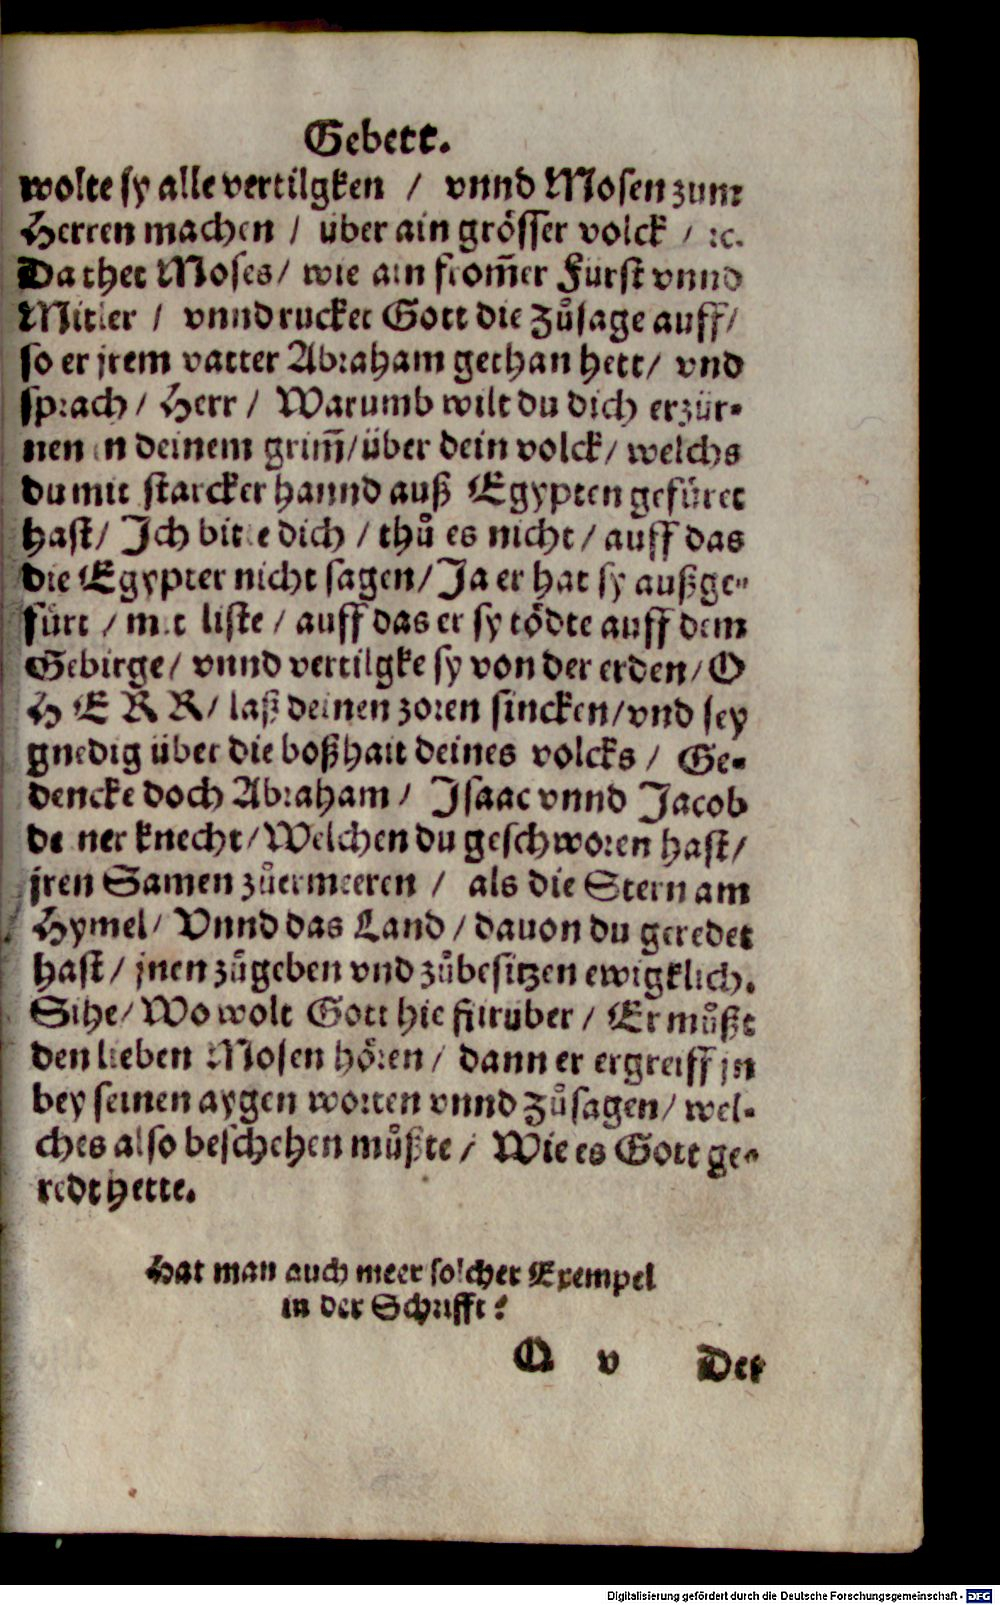 Gebett.
wolte sy alle vertilgken / vnnd Mosen zum
Herren machen / über ain grösser volck / ꝛc.
Da thet Moses / wie ain from̃er Fürst vnnd
Mitler / vnnd rucket Gott die zůsage auff /
so er jrem vatter Abraham gethan hett / vnd
sprach / Herr / Warumb wilt du dich erzür-
nen in deinem grim̃ / über dein volck / welchs
du mit starcker hannd auß Egypten gefüret
hast / Ich bitte dich / thů es nicht / auff das
die Egypter nicht sagen / Ja er hat sy außge-
fürt / mit liste / auff das er sy tödte auff dem
Gebirge / vnnd vertilgke sy von der erden / O
HERR / laß deinen zoren sincken / vnd sey
gnedig über die boßhait deines volcks / Ge-
dencke doch Abraham / Isaac vnnd Jacob
deiner knecht / Welchen du geschworen hast /
jren Samen zůermeeren / als die Stern am
Hymel / Vnnd das Land / dauon du geredet
hast / jnen zůgeben vnd zůbesitzen ewigklich.
Sihe / Wo wolt Gott hie fürüber / Er můßt
den lieben Mosen hören / dann er ergreiff jn
bey seinen aygen worten vnnd zůsagen / wel-
ches also beschehen můßte / Wie es Gott ge-
redt hette.
Hat man auch meer solcher Exempel
in der Schrifft?
Q v Der
Digitalisierung gefördert durch die Deutsche Forschungsgemeinschaft - DFG